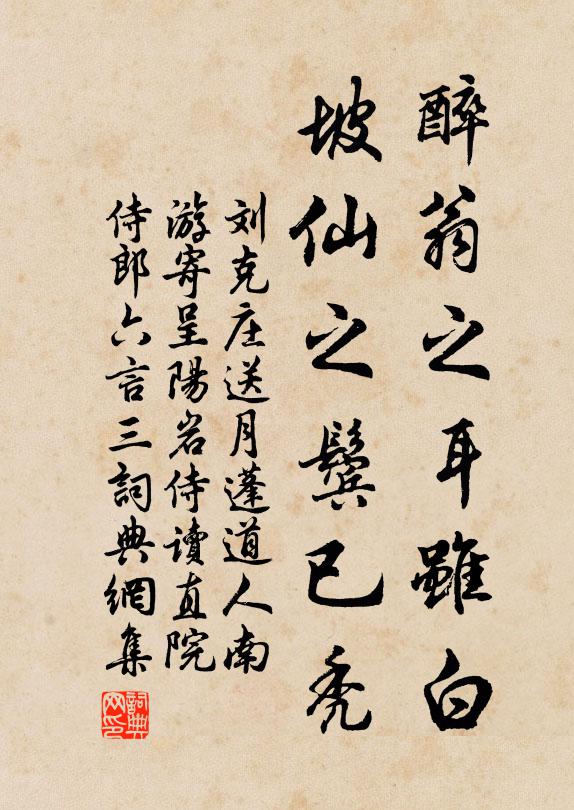 醉翁之耳雖白
坡仙之鬓已秃
刘克庄送月蓬道人南
游寄呈陽岩侍讀直院
侍郎六言三詞典網集
詞典
网印